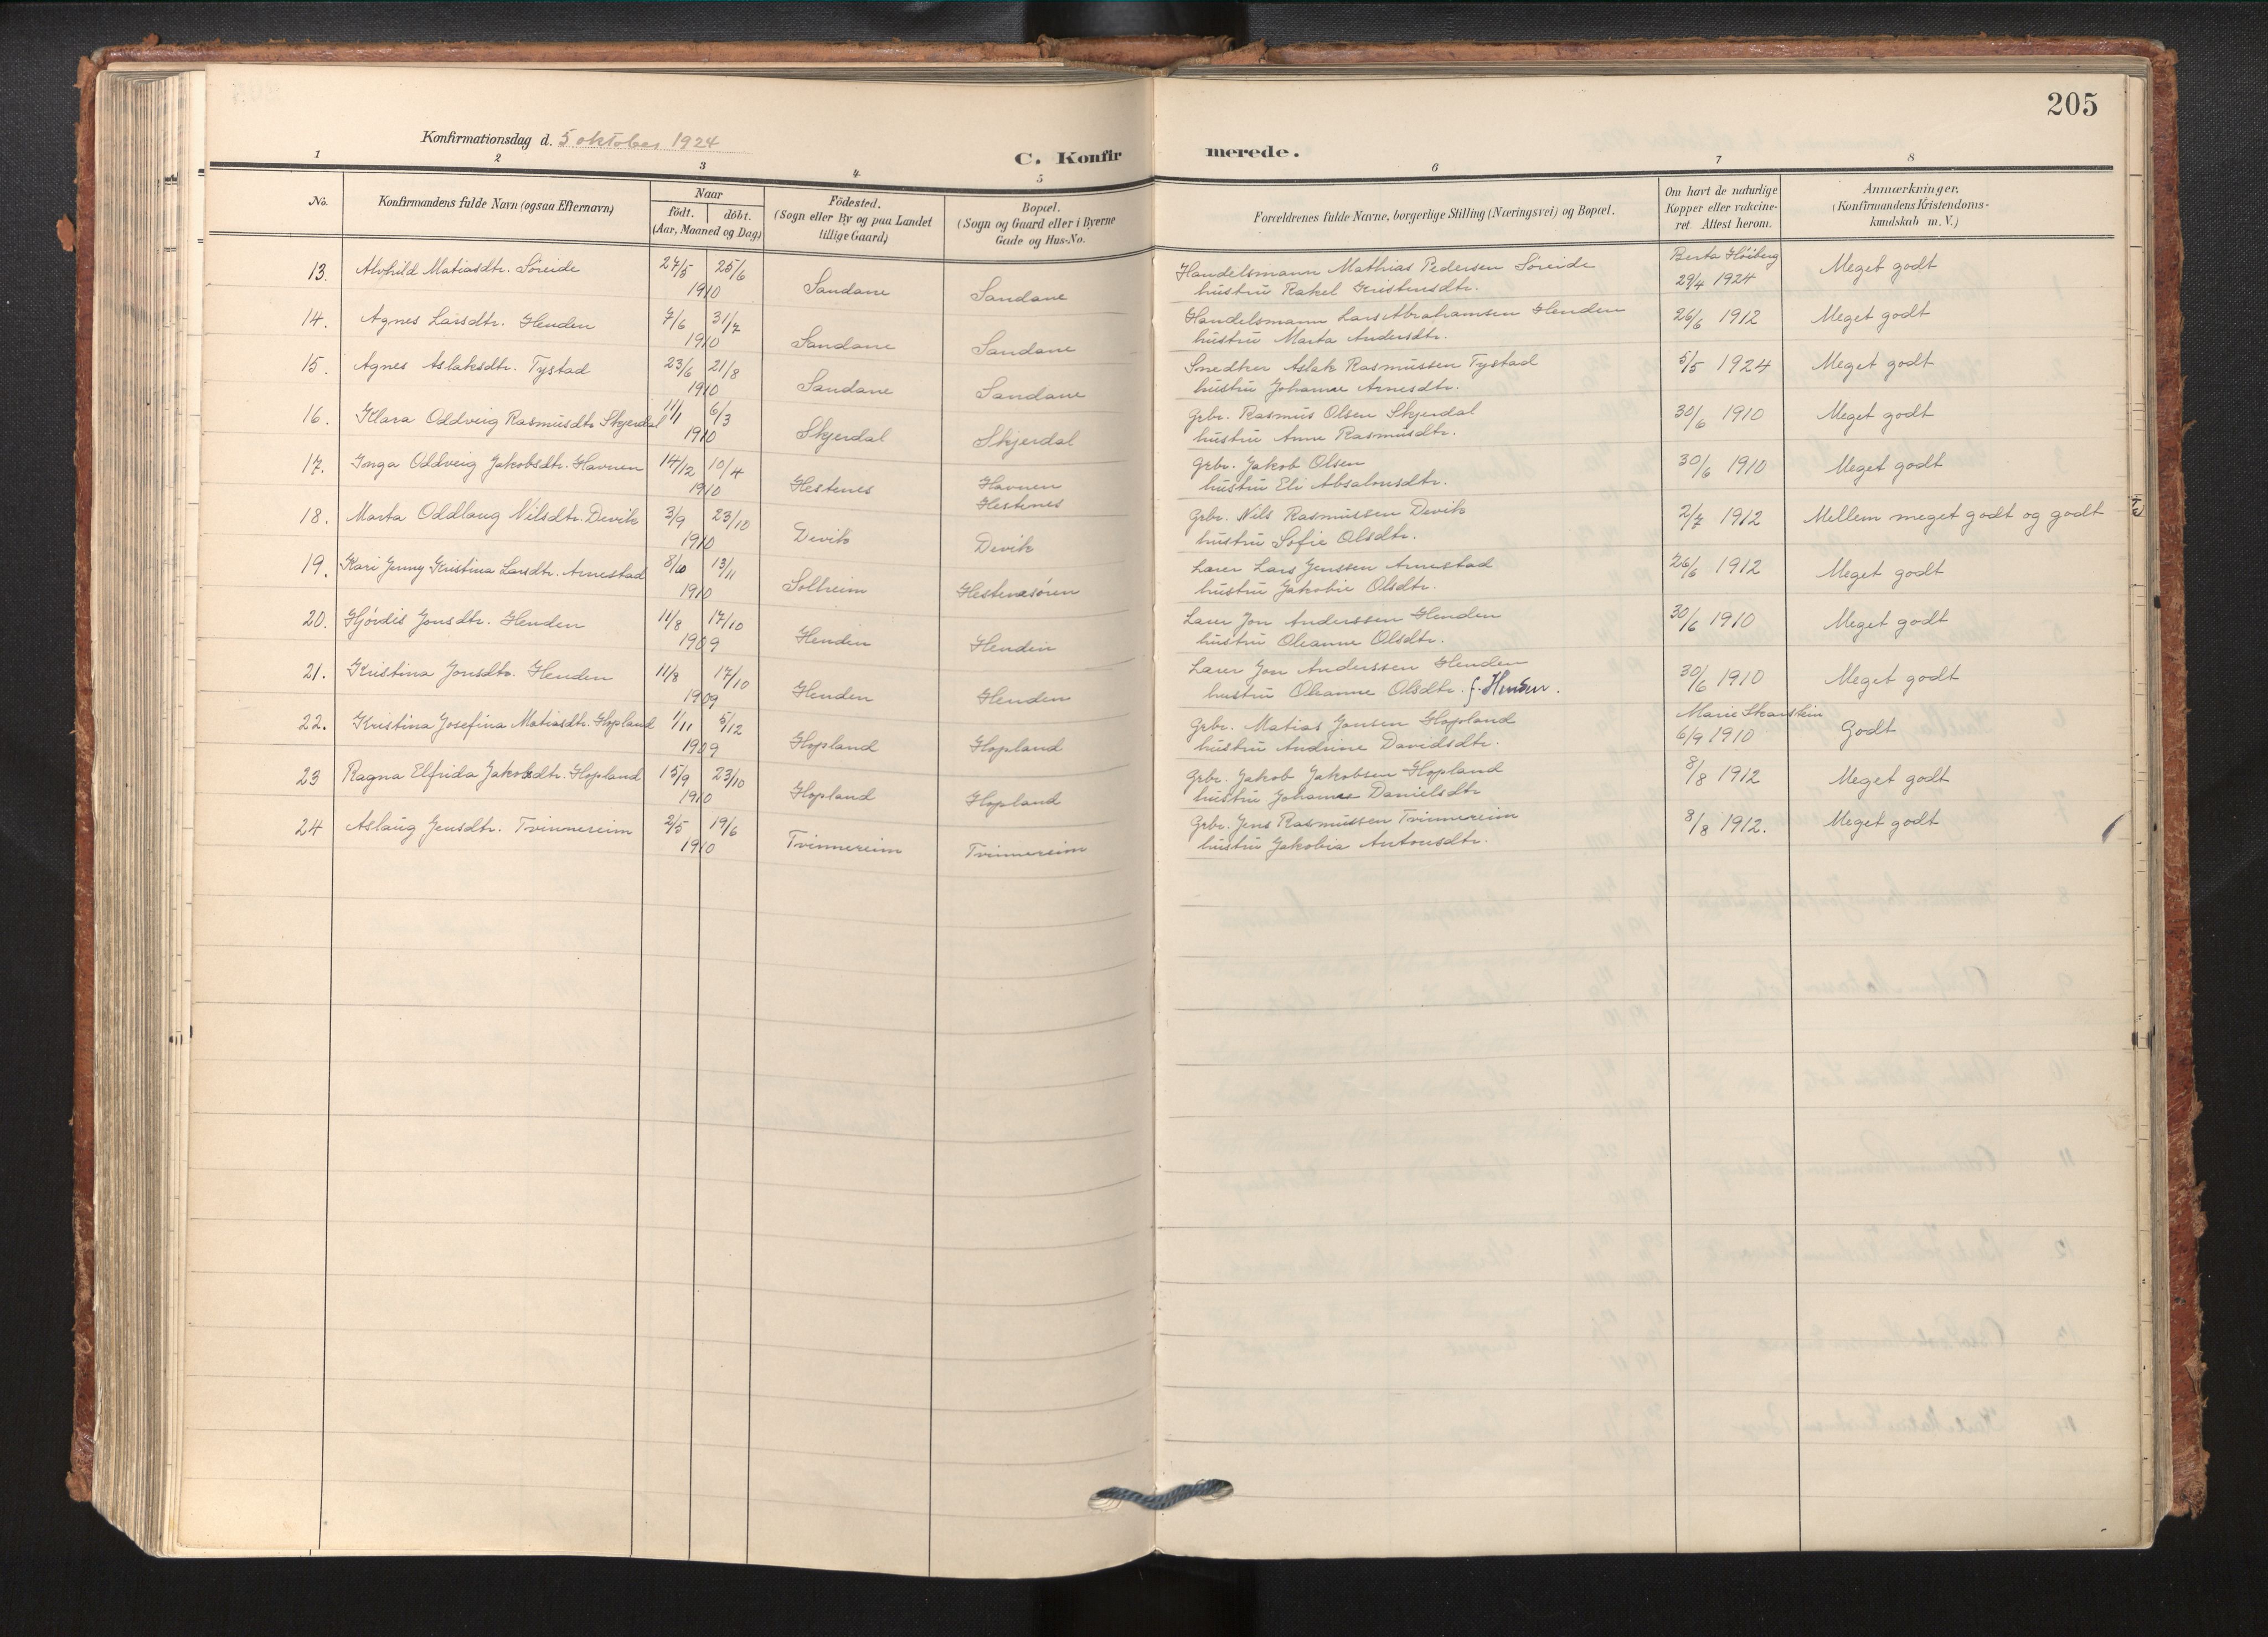 205
Konfirmationsdag d. 5 oktober 1924
C. Konfirmerede.
1 2 3 4 5 6 7 8
No.
Konfirmandens fulde Navn (ogsaa Efternavn)
Naar
födt. döbt.
(Aar, Maaned og Dag)
Födested.
(Sogn eller By og paa Landet
tillige Gaard)
Bopæl.
(Sogn og Gaard eller i Byerne
Gade og Hus-No.
Forældrenes fulde Navne, borgerlige Stilling (Næringsvei) og Bopæl.
Om havt de naturlige
Kopper eller vakcine-
ret. Attest herom.
Anmærkninger.
(Konfirmandens Kristendoms-
kundskab m. V.)
13. Alvhild Matiasdtr. Söreide 24/5 25/6 1910 Sandane Sandane
Handelsmann Mathias Pedersen Söreide
hustru Rakel Kristensdtr.
Berta Höiberg
29/4 1924 Meget godt
14. Agnes Larsdtr. Henden 7/6 31/7 1910 Sandane Sandane
Handelsmann Lars Abrahamsen Henden
hustru Marta Andersdtr.
26/6 1912 Meget godt
15. Agnes Aslaksdtr. Tystad 23/6 21/8 1910 Sandane Sandane
Snedker Aslak Rasmussen Tystad
hustru Johanne Arnesdtr.
5/5 1924 Meget godt
16. Klara Oddveig Rasmusdtr Skjerdal 11/1 6/3 1910 Skjerdal Skjerdal
Grbr. Rasmus Olsen Skjerdal
hustru Anne Rasmusdtr.
30/6 1910 Meget godt
17. Inga Oddveig Jakobsdtr. Havnen 14/12 10/4 1910 Hestenes Havnen
Hestenes
Grbr. Jakob Olsen
hustru Eli Absalonsdtr.
30/6 1910 Meget godt
18. Marta Oddlaug Nilsdtr. Devik 3/9 23/10 1910 Devik Devik
Grbr. Nils Rasmussen Devik
hustru Sofie Olsdtr.
2/7 1912 Mellem meget godt og godt
19. Kari Jenny Kristina Larsdtr. Arnestad 8/10 13/11 1910 Solheim Hestenesören
Lærer Lars Jenssen Arnestad
hustru Jakobie Olsdtr.
26/6 1912 Meget godt
20. Hjördis Jonsdtr. Henden 11/8 17/10 1909 Henden Henden
Lærer Jon Anderssen Henden
hustru Oleanne Olsdtr.
30/6 1910 Meget godt
21. Kristina Jonsdtr. Henden 11/8 17/10 1909 Henden Henden
Lærer Jon Anderssen Henden
hustru Oleanne Olsdtr. f. Henden.
30/6 1910 Meget godt
22. Kristina Josefina Matiasdtr. Hopland 1/11 5/12 1909 Hopland Hopland
Grbr. Matias Jonsen Hopland
hustru Andrine Davidsdtr.
Marie Skarstein
6/9 1910 Godt
23 Ragna Elfrida Jakobsdtr. Hopland 15/9 23/10 1910 Hopland Hopland
Grbr. Jakob Jakobsen Hopland
hustru Johanne Danielsdtr
8/8 1912 Meget godt
24 Aslaug Jensdtr. Tvinnereim 2/5 19/6 1910 Tvinnereim Tvinnereim
Grbr. Jens Rasmussen Tvinnereim
hustru Jakobia Antonsdtr.
8/8 1912. Meget godt